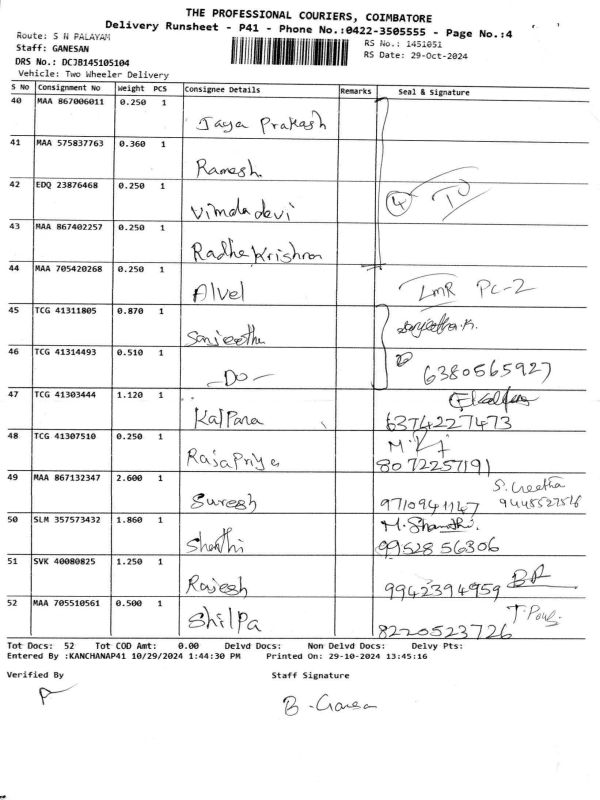 THE PROFESSIONAL COURIERS, COIMBATORE
Delivery Runsheet - P41 - Phone No.:0422-3505555 - Page No.:4
Route: S N PALAYAM
RS No.: 1451051
Staff: GANESAN
RS Date: 29-Oct-2024
DRS No.: DCJB145105104
Vehicle: Two Wheeler Delivery
S No Consignment No Weight PCS Consignee Details Remarks Seal & Signature
40 MAA 867006011 0.250 1
Jaya Prakash
41 MAA 575837763 0.360 1
Ramesh
42 EDQ 23876468 0.250 1
Vimala devi 4
43 MAA 867402257 0.250 1
Radha Krishnan
44 MAA 705420268 0.250 1
Alvel LMR PC-2
45 TCG 41311805 0.870 1
Sanjeetha Sanjeetha.K.
46 TCG 41314493 0.510 1
-DO- 6380565927
47 TCG 41303444 1.120 1
Kalpana 6374227473
48 TCG 41307510 0.250 1
Rajapriya 8072257191
49 MAA 867132347 2.600 1 S. Geetha
Suresh 9710941147 9445527516
50 SLM 357573432 1.860 1 M. Shanthi
Shanthi 9952856306
51 SVK 40080825 1.250 1
Rajesh 9942394959
52 MAA 705510561 0.500 1
Shilpa 8220523726
Tot Docs: 52 Tot COD Amt: 0.00 Delvd Docs: Non Delvd Docs: Delvy Pts:
Entered By :KANCHANAP41 10/29/2024 1:44:30 PM Printed On: 29-10-2024 13:45:16
Verified By Staff Signature
B. Ganesan